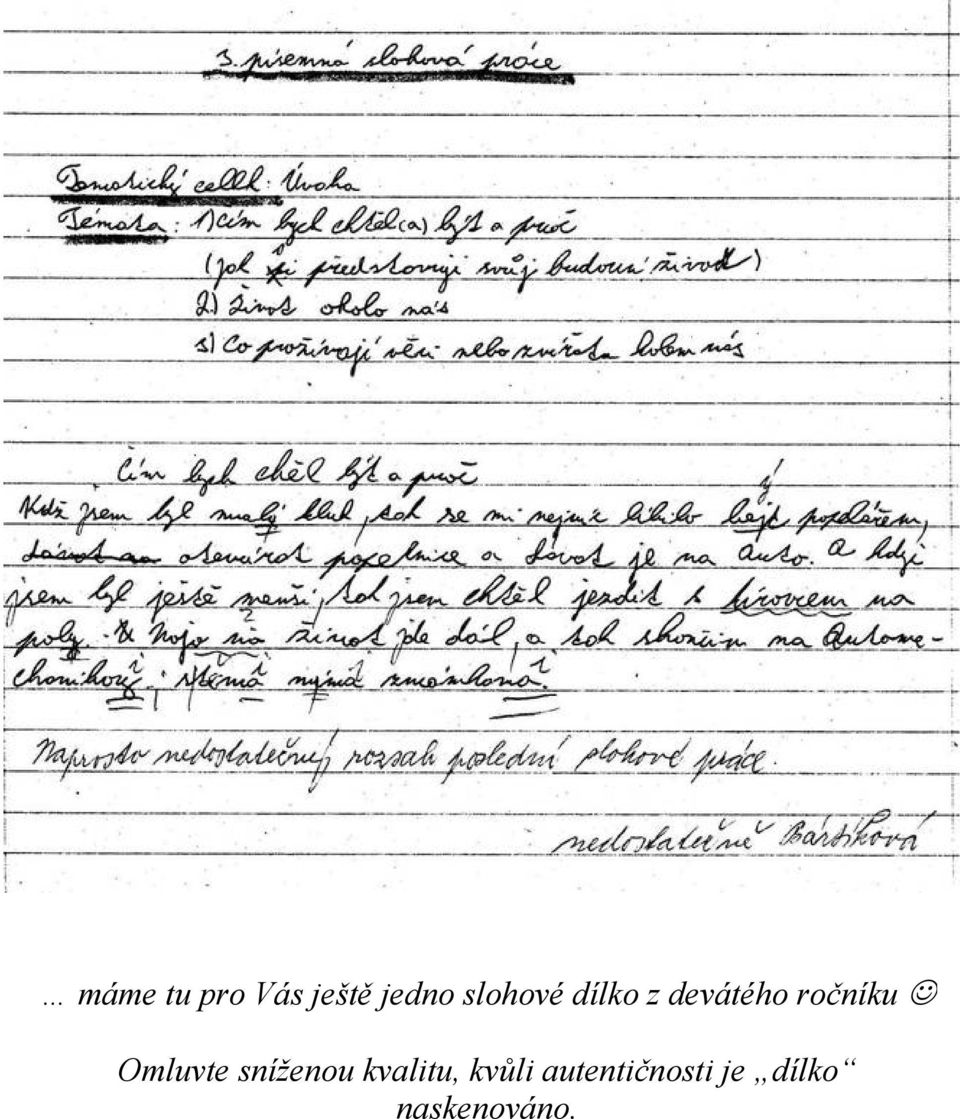 3. písemná slohová práce
Tematický cellk: Úvaha
Témata: 1) Čím bych chtěl(a) být a proč
(jak si představuji svůj budoucí život)
2) Život okolo nás
3) Co prožívají věci nebo zvířata kolem nás
Čím bych chěl být a proč
Když jsem byl malý kluk, tak se mi nejvíc líbilo bejt popelářem,
otevírat popelnice a dávat je na auto. A když
jsem byl ještě menší, tak jsem chtěl jezdit s
poly. Nojo život jde dál, a tak skončím na Autome-
Naprosto nedostatečný rozsah poslední slohové práce.
nedostatečně Bártíková
... máme tu pro Vás ještě jedno slohové dílko z devátého ročníku ☺
Omluvte sníženou kvalitu, kvůli autentičnosti je „dílko“
naskenováno.